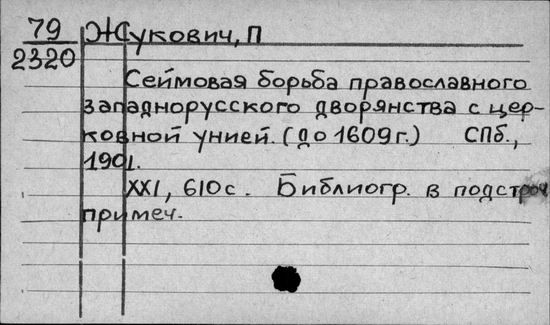 79 Жукович, П
2320
Сеймовая борьба православного
западнорусского дворянства с цер-
ковной унией. (до 1609г.) СПб.,
1901.
XXI, 610с. Библиогр. в подстроч
примеч.